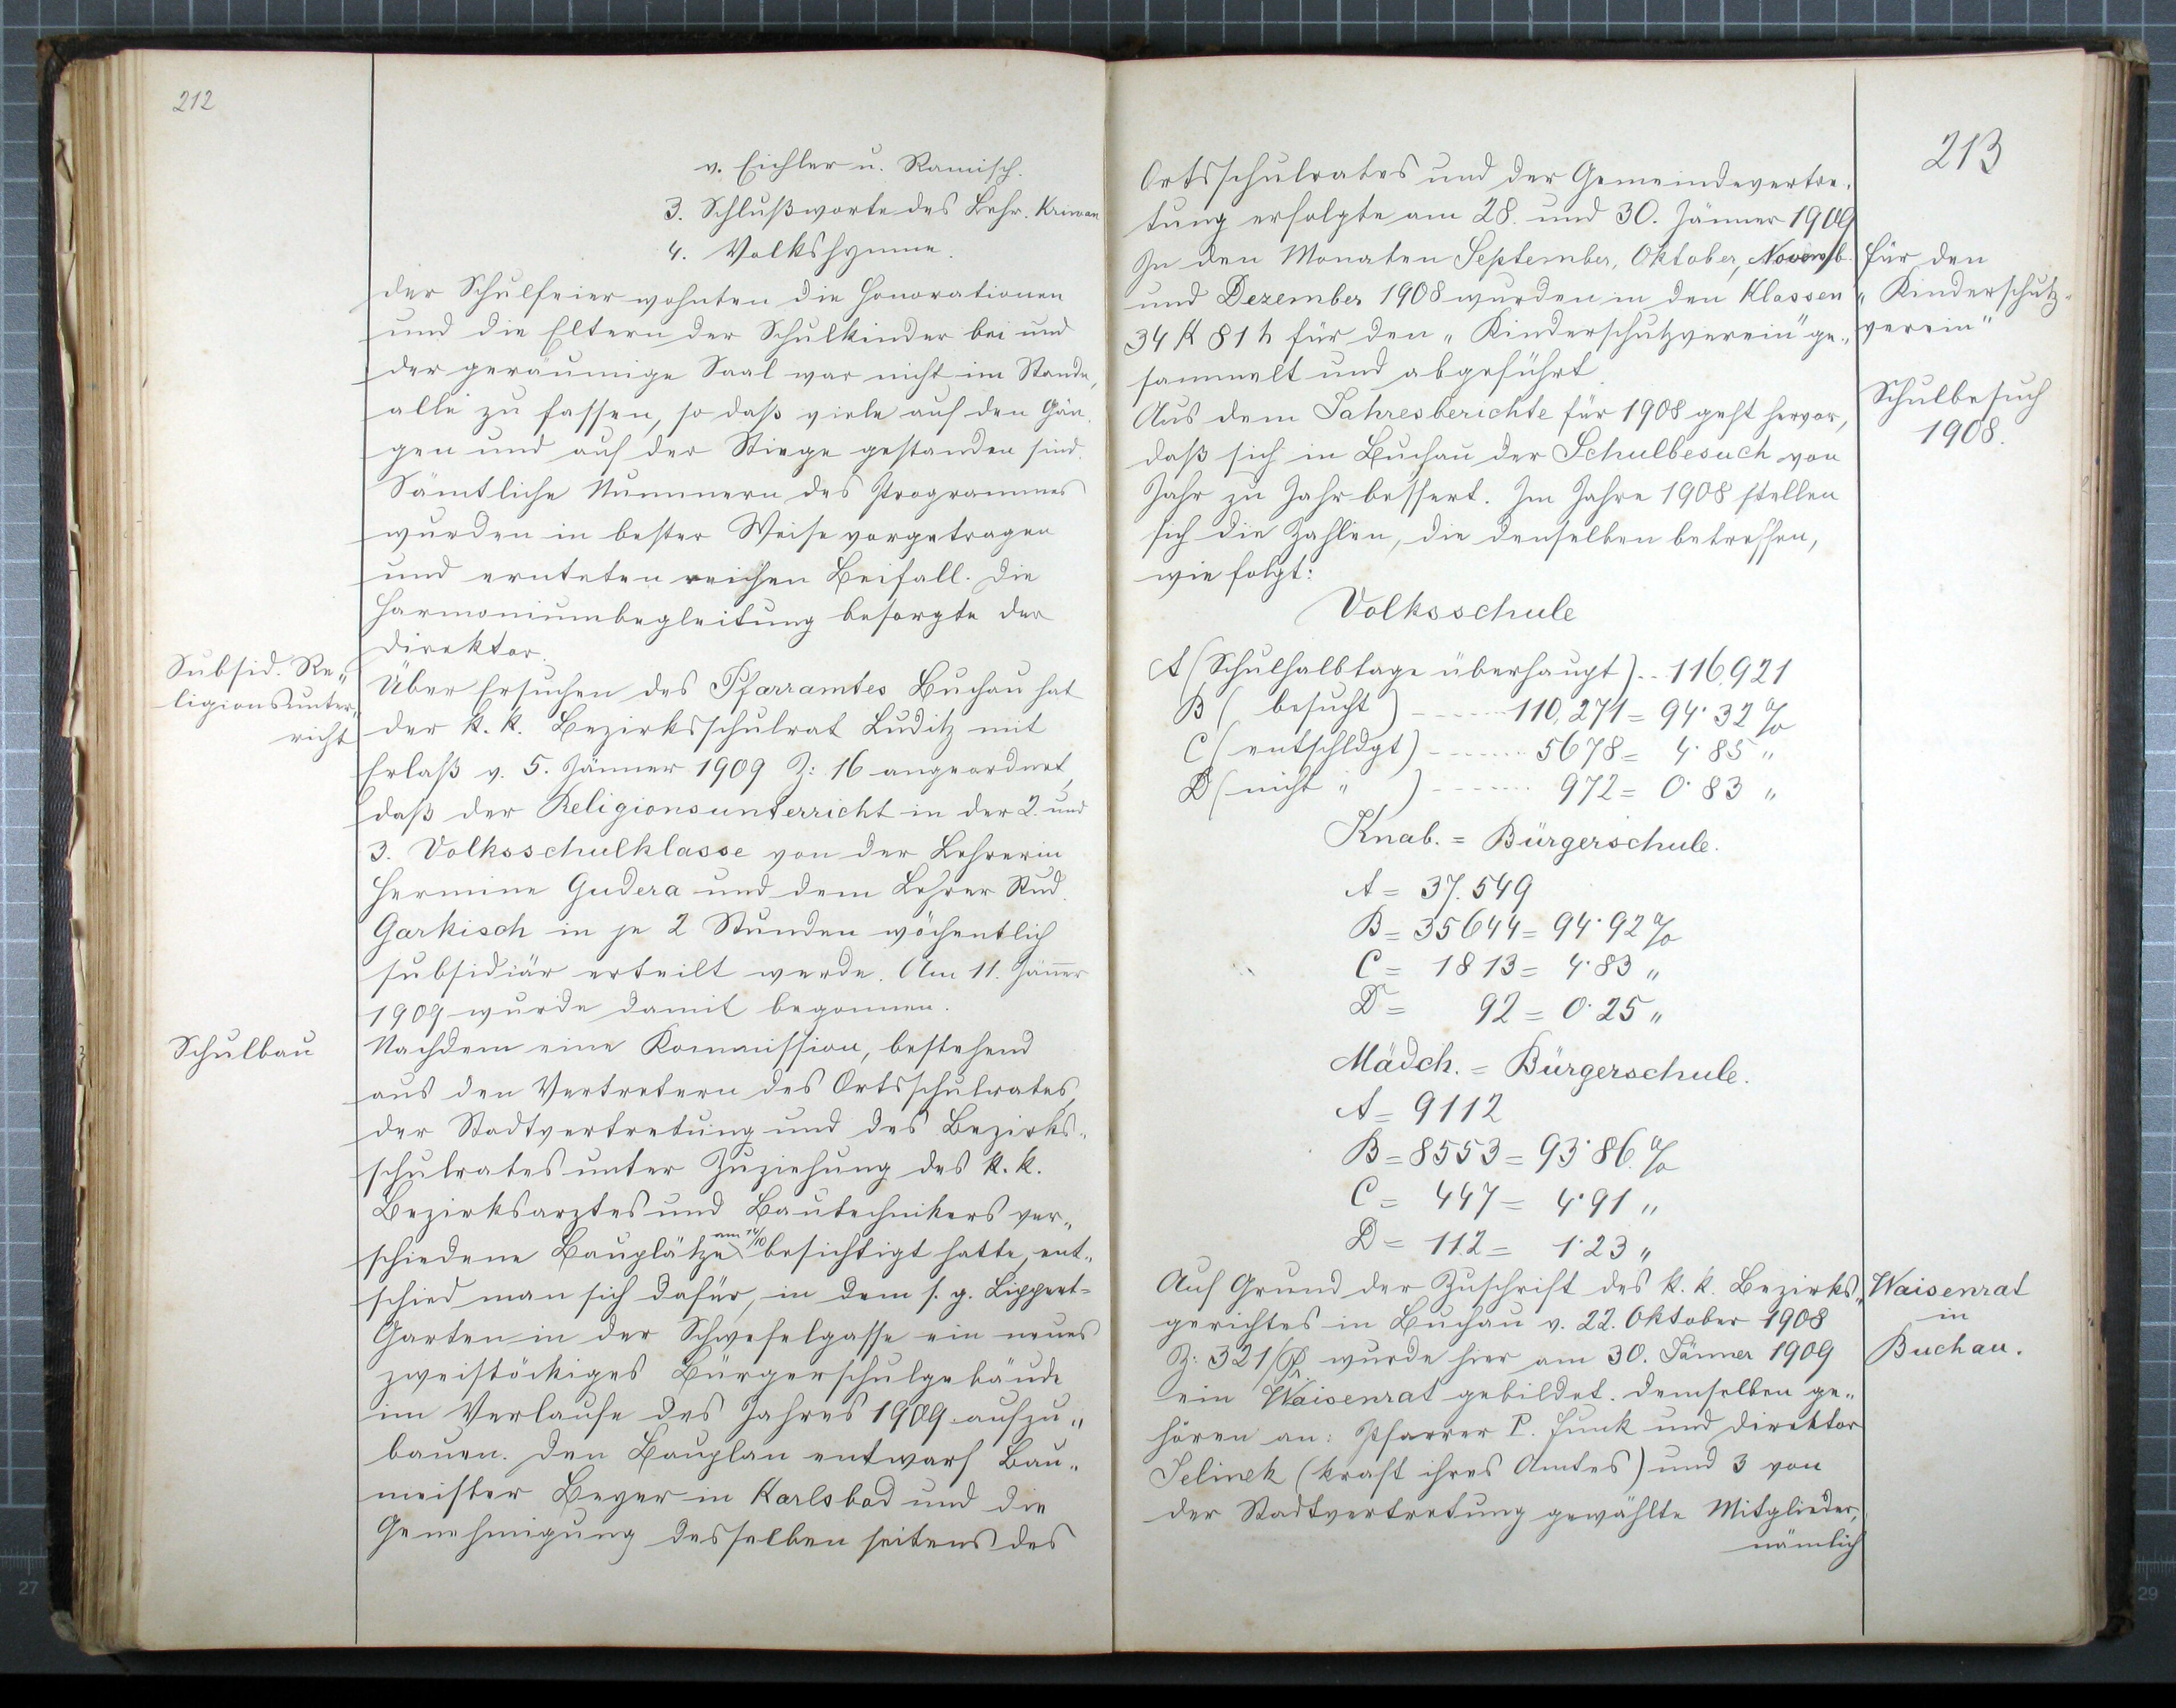 212
v. Eichler u. Ramisch.
3. Schlußworte des Lehr. Kriwan
4. Volkshymne.
Der Schulfeier wohnten die Honorationen
und die Eltern der Schulkinder bei und
der geräumige Saal war nicht im Stande,
alle zu fassen, so daß viele auf den Gän-
gen und auf der Stiege gestanden sind.
Sämtliche Nummern des Programmes
wurden in bester Weise vorgetragen
und ernteten reichen Beifall. Die
Harmoniumbegleitung besorgte der
Direktor.
Subsid. Re„
ligionsunter„
richt
Über Ersuchen des Pfarramtes Buchau hat
der k. k. Bezirksschulrat Luditz mit
Erlaß v. 5. Jänner 1909 Z: 16 angeordnet,
daß der Religionsunterricht in der 2. und
3. Volksschulklasse von der Lehrerin
Hermine Gudera und dem Lehrer Rud.
Garkisch in je 2 Stunden wöchentlich
subsidiär erteilt werde. Am 11. Jänner
1909 wurde damit begonnen.
Schulbau
Nachdem eine Kommission, bestehend
aus den Vertretern des Ortsschulrates,
der Stadtvertretung und des Bezirks„
schulrates unter Zuziehung des k. k.
Bezirksarztes und Bautechnikers ver„
schiedene Bauplätze am /10 besichtigt hatte, ent„
schied man sich dafür, in dem s. g. Lippert-
Garten in der Schwefelgasse ein neues
zweistöckiges Bürgerschulgebäude
im Verlaufe des Jahres 1909 aufzu„
bauen. Den Bauplan entwarf Bau„
meister Beyer in Karlsbad und die
Genehmigung desselben seitens des
213
Ortsschulrates und der Gemeindevertre-
tung erfolgte am 28. und 30. Jänner 1909
In den Monaten September, Oktober, Novemb.
und Dezember 1908 wurden in den Klassen
34 K 81 h für den „Kinderschutzverein" ge„
sammelt und abgeführt.
Für den
„Kinderschutz-
verein"
Aus dem Jahresberichte für 1908 geht hervor,
daß sich in Buchau der Schulbesuch von
Jahr zu Jahr bessert. Im Jahre 1908 stellen
sich die Zahlen, die denselben betreffen,
wie folgt:
Schulbesuch
1908.
Volksschule
A (Schulhalbtage überhaupt) .. 116,921
B ( besucht ) ------ 110,271 = 94·32 %
C (entschldgt) ------- 5678 = 4·85 „
D (nicht „ ) ------- 972 = 0·83 „
Knab. = Bürgerschule.
A = 37.549
B = 35644 = 94·92 %
C = 1813 = 4·83 „
D = 92 = 0·25 „
Mädch. = Bürgerschule.
A = 9112
B = 8553 = 93·86 %
C = 447 = 4·91 „
D = 112 = 1·23 „
Auf Grund der Zuschrift des k. k. Bezirks„
gerichtes in Buchau v. 22. Oktober 1908
Z: 321/ wurde hier am 30. Jänner 1909
ein Waisenrat gebildet. Demselben ge„
hören an: Pfarrer P. Funk und Direktor
Jelinek (kraft ihres Amtes) und 3 von
der Stadtvertretung gewählte Mitglieder,
nämlich
Waisenrat
in
Buchau.
27
29